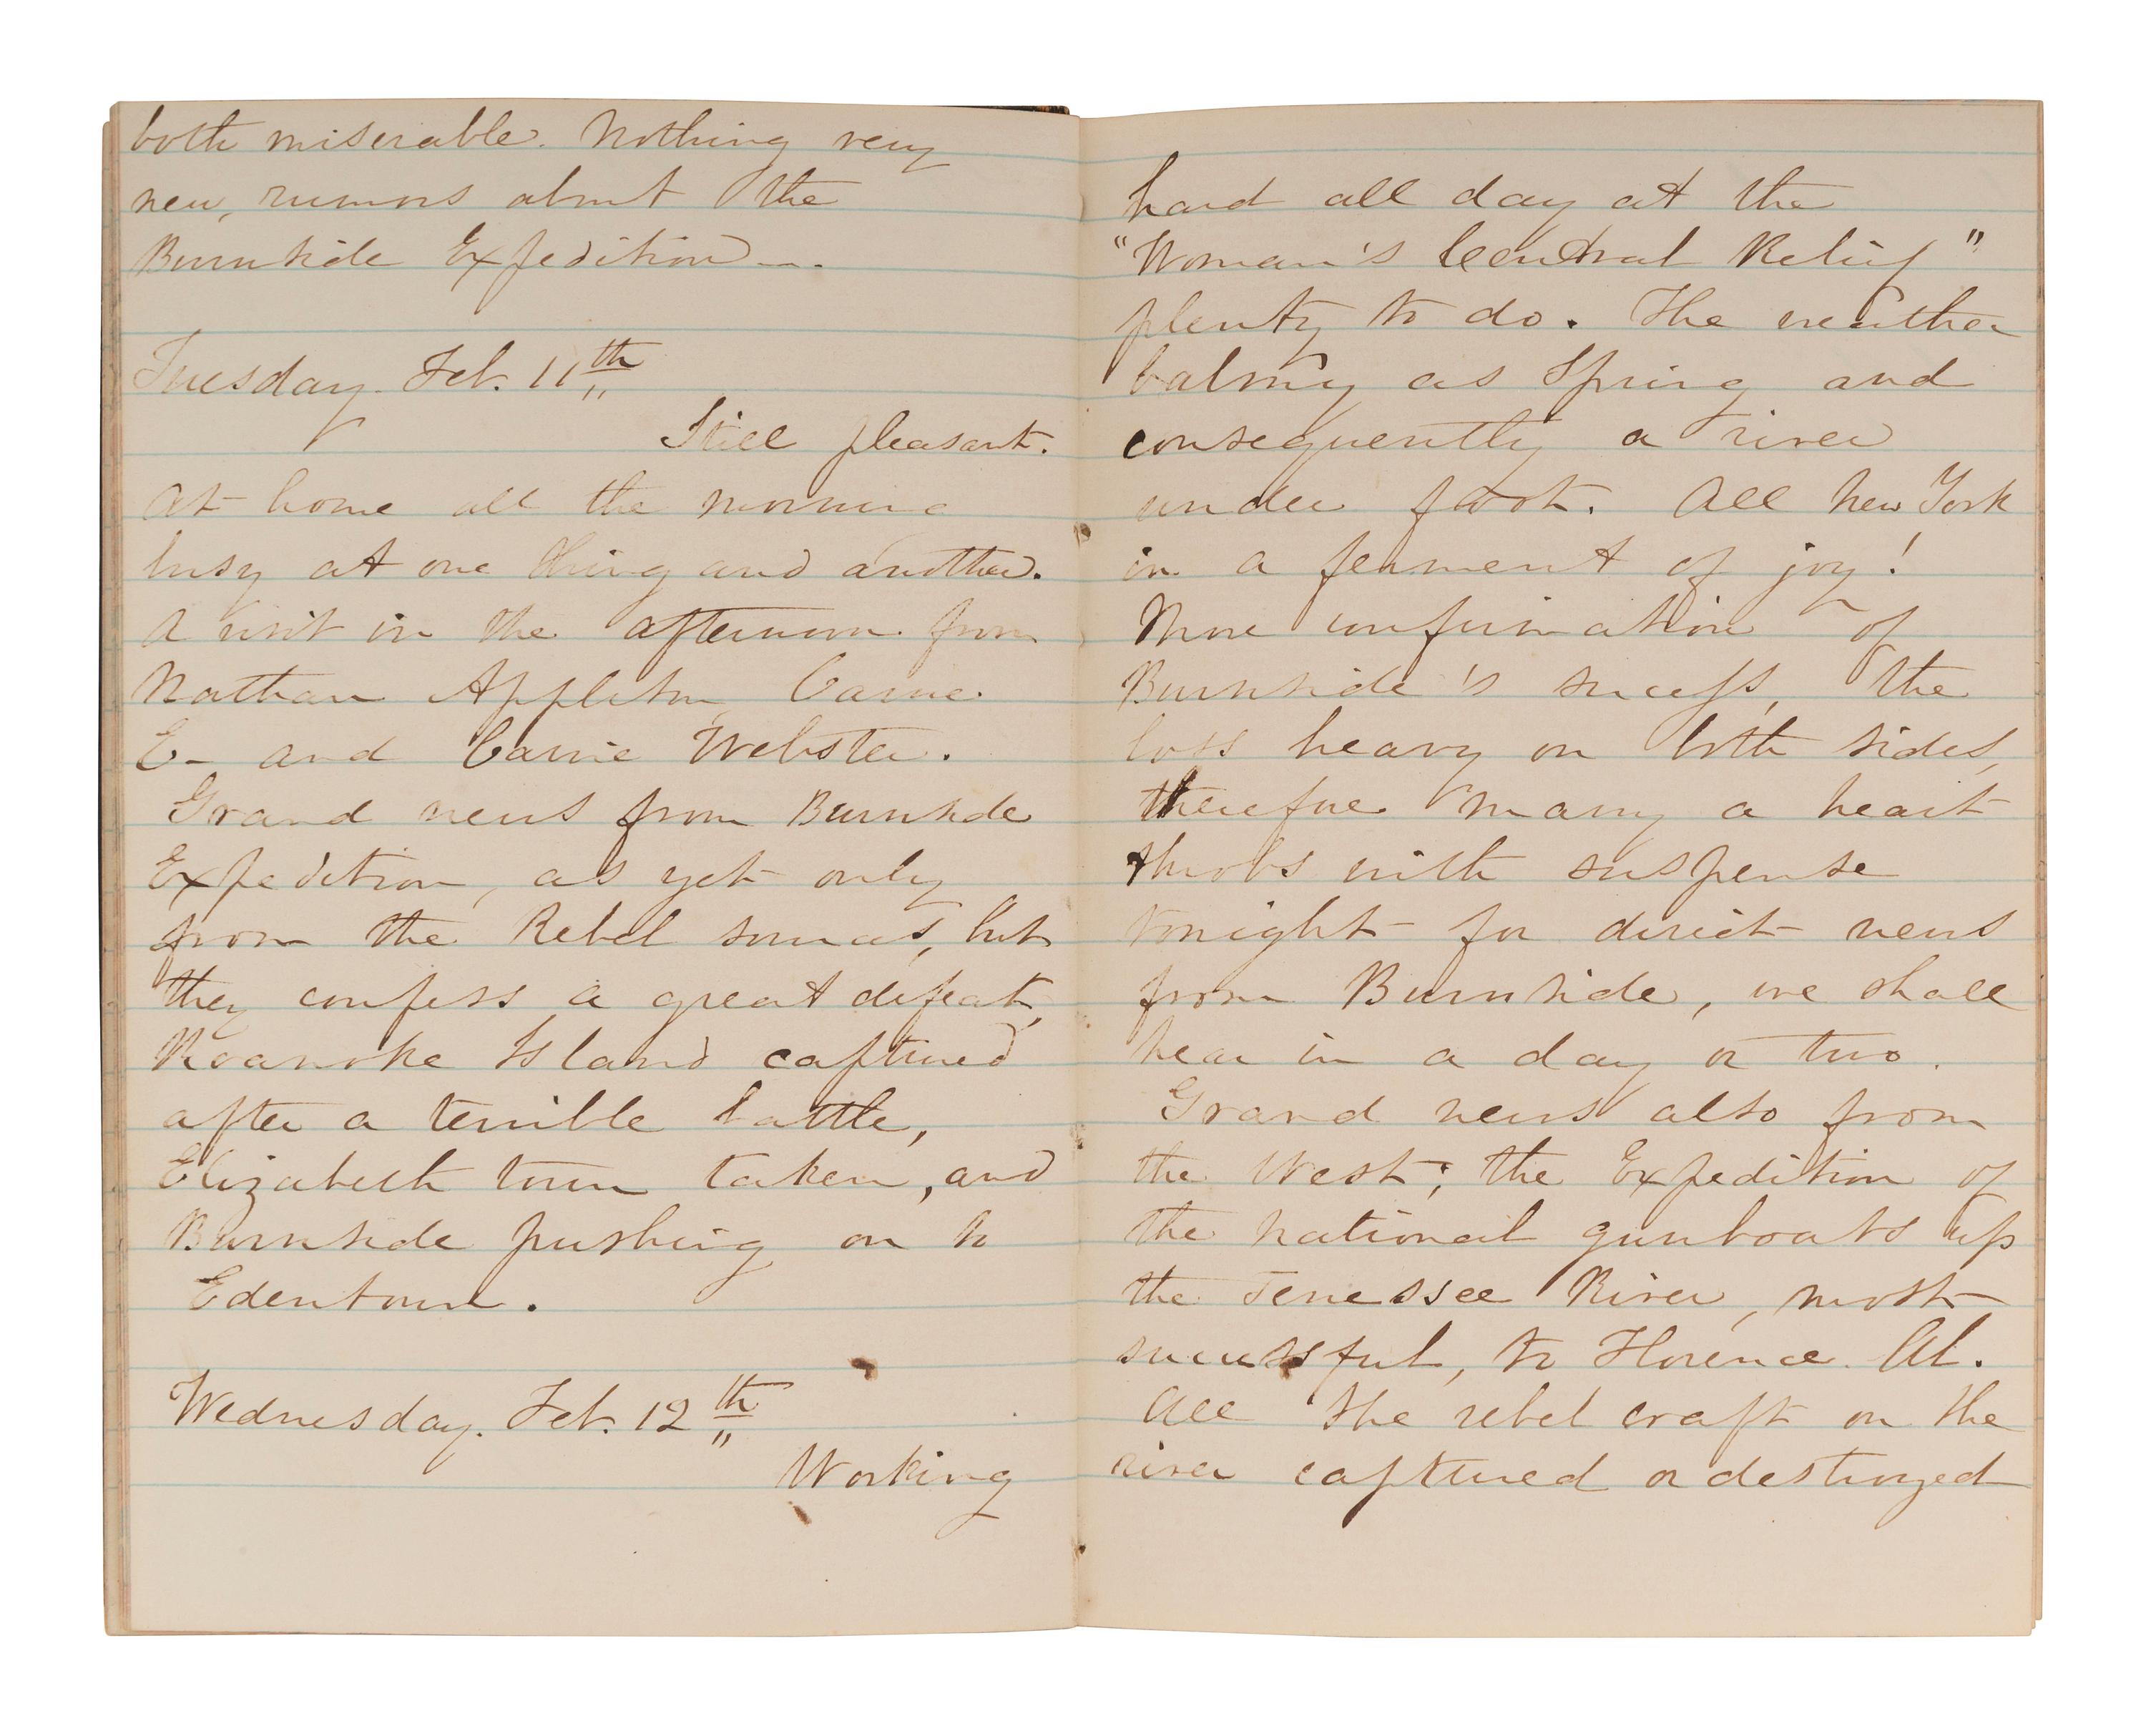 both miserable. Nothing very
new, rumors about the
Burnside Expedition—.
Tuesday. Feb. 11th
Still pleasant.
At home all the morning
busy at one thing and another.
A visit in the afternoon from
Nathan Appleton, Carrie
E– and Carrie Webster.
Grand news from Burnside
Expedition, as yet only
from the Rebel sources, but
they confess a great defeat,
Roanoke Island captured
after a terrible battle,
Elizabeth town taken, and
Burnside pushing on to
Edentown.
Wednesday. Feb. 12th
Working
hard all day at the
"Woman's Central Relief"
plenty to do. The weather
balmy as Spring and
consequently a river
under foot. All New York
in a ferment of joy!
More confirmation of
Burnside's success, the
loss heavy on both sides,
therefore many a heart
throbs with suspense
tonight for direct news
from Burnside, we shall
hear in a day or two.
Grand news also from
the West; the Expedition of
the national gunboats up
the Tenessee River, most
successful, to Florence Al.
All the rebel craft on the
river captured or destroyed